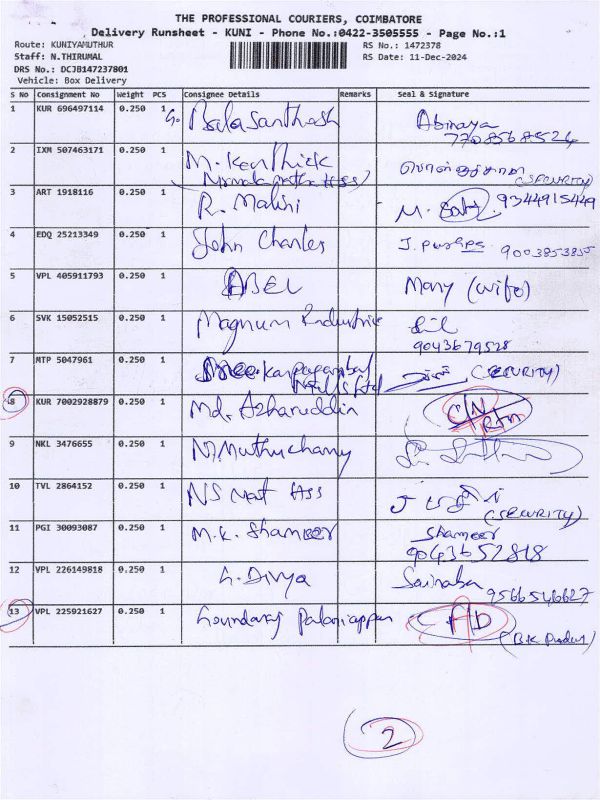 THE PROFESSIONAL COURIERS, COIMBATORE
Delivery Runsheet - KUNI - Phone No.:0422-3505555 - Page No.:1
Route: KUNIYAMUTHUR RS No.: 1472378
Staff: N.THIRUMAL RS Date: 11-Dec-2024
DRS No.: DCJB147237801
Vehicle: Box Delivery
S No Consignment No Weight PCS Consignee Details Remarks Seal & Signature
1 KUR 696497114 0.250 1 G. Balasanthosh Abinaya
7708568524
2 IXM 507463171 0.250 1 M. Karthick
(SECURITY)
3 ART 1918116 0.250 1 R. Malini M. 9344915449
4 EDQ 25213349 0.250 1 John Charles J. Pushpa 9003853855
5 VPL 405911793 0.250 1 ABEL Mary (wife)
6 SVK 15052515 0.250 1 Magnum Industries
9043679528
7 MTP 5047961 0.250 1 Sree Karpagambal (SECURITY)
Mills Ltd
8 KUR 7002928879 0.250 1 Md. Azharuddin C/N
RTN
9 NKL 3476655 0.250 1 N. Muthuchamy
10 TVL 2864152 0.250 1 NS Mat Hss
(SECURITY)
11 PGI 30093087 0.250 1 M.K. Shameer Shameer
9043652818
12 VPL 226149818 0.250 1 G. Divya Sainaba
9566546627
13 VPL 225921627 0.250 1 Soundary Palaniappan
2